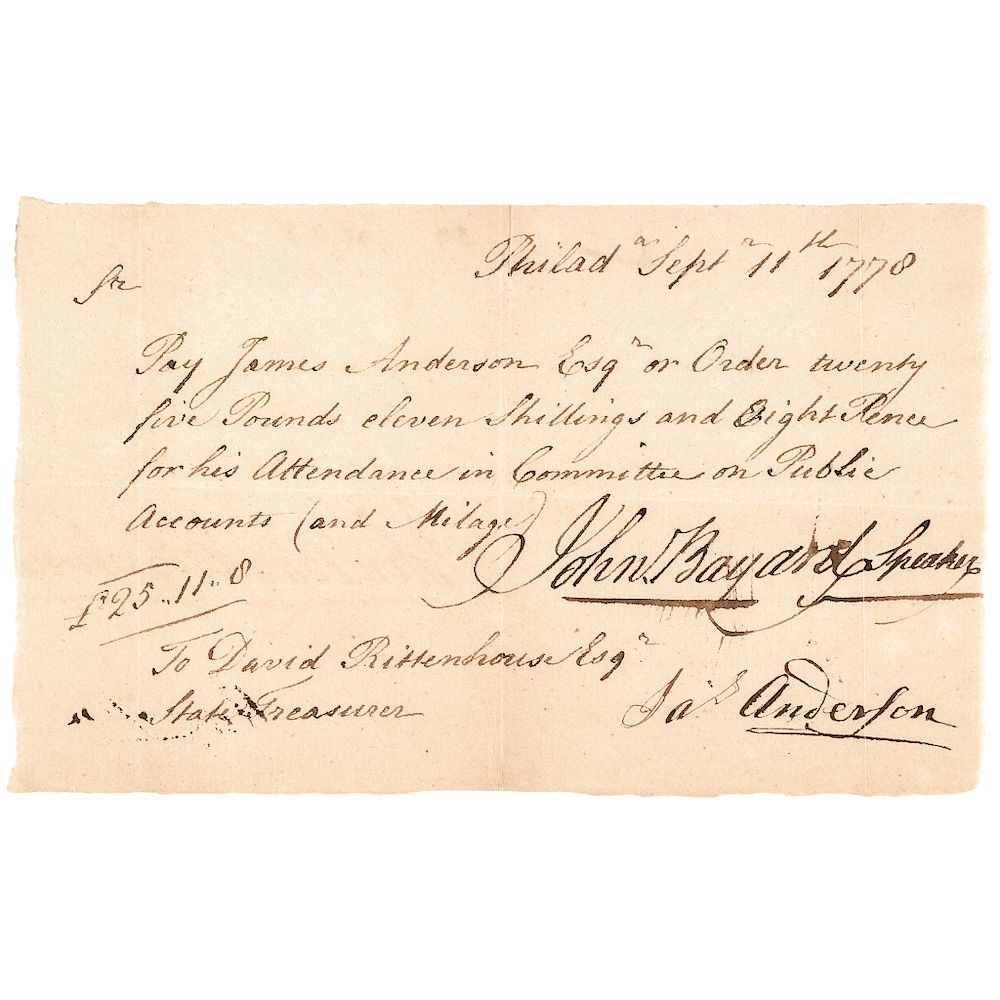 Philad.ᵃ Septʳ 11ᵗʰ 1778
Sir
Pay James Anderson Esqʳ or Order twenty
five Pounds eleven Shillings and Eight Pence
for his Attendance in Committee on Public
Accounts (and Milage)
John Bayard Speaker
£25..11..8
To David Rittenhouse Esqʳ
State Treasurer
Jaˢ Anderson